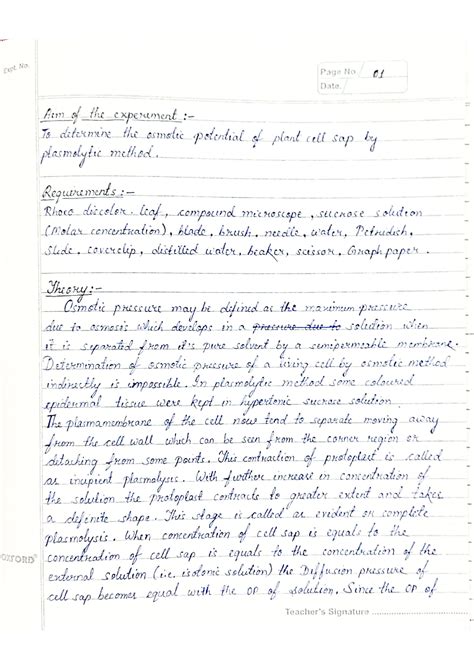 Expt. No.
Page No. 01
Date.
Aim of the experiment :-
To determine the osmotic potential of plant cell sap by
plasmolytic method.
Requirements :-
Rhoeo discolor leaf, compound microscope, sucrose solution
(Molar concentration), blade, brush, needle, water, Petridish,
Slide, coverclip, distilled water, beaker, scissor, Graph paper.
Theory :-
Osmotic pressure may be defined as the maximum pressure
due to osmosis which develops in a pressure due to solution when
it is separated from it's pure solvent by a semipermeable membrane.
Determination of osmotic pressure of a living cell by osmotic method
indirectly is impossible. In plasmolytic method some coloured
epidermal tissue were kept in hypertonic sucrose solution
The plasmamembrane of the cell now tend to separate moving away
from the cell wall which can be seen from the corner region or
detaching from some points. This contraction of protoplast is called
as incipient plasmolysis. With further increase in concentration of
the solution the protoplast contracts to greater extent and takes
a definite shape. This stage is called as evident or complete
plasmolysis. When concentration of cell sap is equals to the
concentration of cell sap is equals to the concentration of the
external solution (i.e. isotonic solution) the Diffusion pressure of
cell sap becomes equal with the OP of solution. Since the OP of
OXFORD
Teacher's Signature